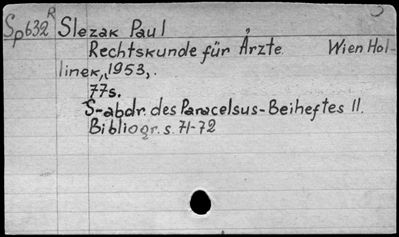 Sp632R Slezak Paul
Rechtskunde für Ärzte. Wien Hol-
linek, 1953,.
77s.
S-abdr. des Paracelsus-Beiheftes 11.
Bibliogr. s. 71-72